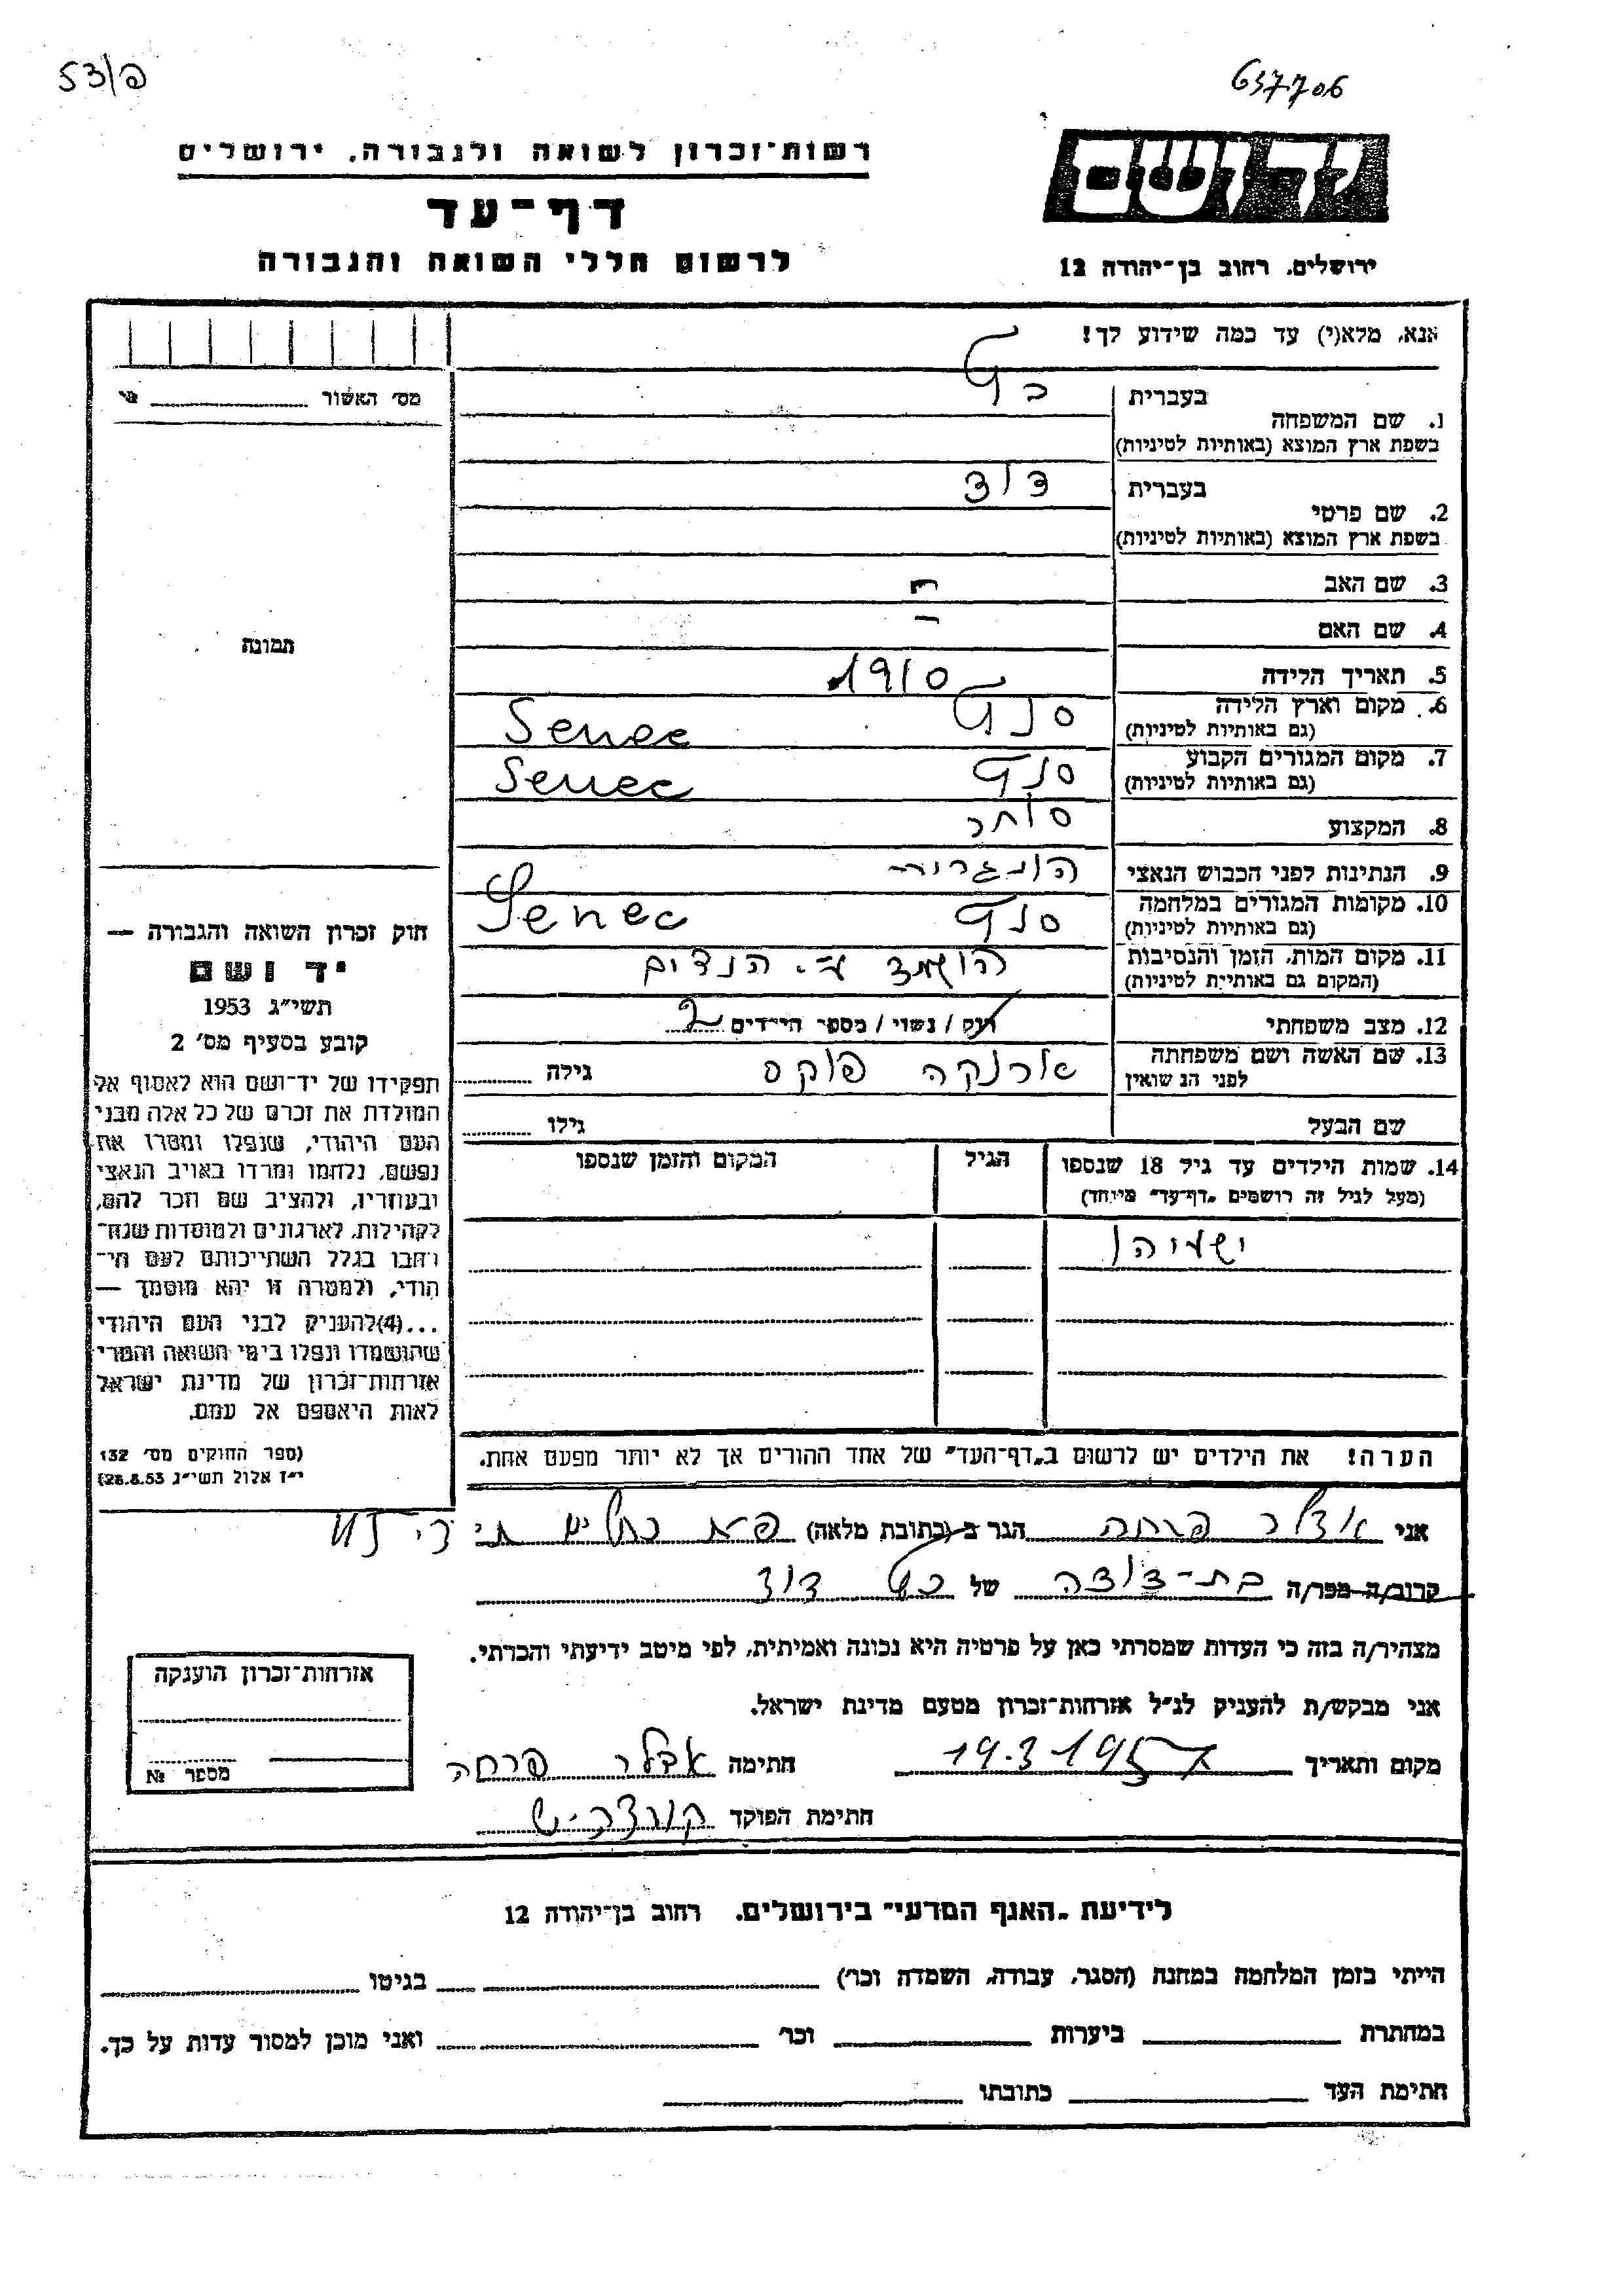 53/פ
637706
רשות־זכרון לשואה ולגבורה, ירושלים
דף־עד
לרשום חללי השואה והגבורה
יד ושם
ירושלים, רחוב בן־יהודה 12
אנא, מלא(י) עד כמה שידוע לך!
מס׳ האשור
1. שם המשפחה
בעברית
בשפת ארץ המוצא (באותיות לטיניות)
2. שם פרטי
בעברית דוד
בשפת ארץ המוצא (באותיות לטיניות)
3. שם האב –
4. שם האם –
5. תאריך הלידה 1910
6. מקום וארץ הלידה
(גם באותיות לטיניות) סנץ Senec
7. מקום המגורים הקבוע
(גם באותיות לטיניות) סנץ Senec
8. המקצוע סוחר
9. הנתינות לפני הכבוש הנאצי הונגרית
10. מקומות המגורים במלחמה
(גם באותיות לטיניות) סנץ Senec
11. מקום המות, הזמן והנסיבות
(המקום גם באותיות לטיניות) הושמד ע״י הנאצים
12. מצב משפחתי רווק / נשוי / מספר הילדים 2
13. שם האשה ושם משפחתה
לפני הנשואין ארנקה פוקס גילה
שם הבעל גילו
14. שמות הילדים עד גיל 18 שנספו
(מעל לגיל זה רושמים „דף־עד״ מיוחד)
הגיל
המקום והזמן שנספו
ישעיהו
תמונה
חוק זכרון השואה והגבורה —
יד ושם
תשי״ג 1953
קובע בסעיף מס׳ 2
תפקידו של יד־ושם הוא לאסוף אל
המולדת את זכרם של כל אלה מבני
העם היהודי, שנפלו ומסרו את
נפשם, נלחמו ומרדו באויב הנאצי
ובעוזריו, ולהציב שם וזכר להם,
לקהילות, לארגונים ולמוסדות שנח־
רבו בגלל השתייכותם לעם הי־
הודי, ולמטרה זו יהא מוסמך —
...(4)להעניק לבני העם היהודי
שהושמדו ונפלו בימי השואה והמרי
אזרחות־זכרון של מדינת ישראל
לאות היאספם אל עמם.
(ספר החוקים מס׳ 132
י״ז אלול תשי״ג 28.8.53)
הערה! את הילדים יש לרשום ב„דף־העד״ של אחד ההורים אך לא יותר מפעם אחת.
אני אדלר פרחה הגר ב (כתובת מלאה)
קרוב/ה מכר/ה בת-דודה של דוד
מצהיר/ה בזה כי העדות שמסרתי כאן על פרטיה היא נכונה ואמיתית, לפי מיטב ידיעתי והכרתי.
אני מבקש/ת להעניק לנ״ל אזרחות־זכרון מטעם מדינת ישראל.
מקום ותאריך 19.3.1957 חתימה אדלר פרחה
חתימת הפוקד
אזרחות־זכרון הוענקה
מספר №
לידיעת „האגף המדעי״ בירושלים, רחוב בן־יהודה 12
הייתי בזמן המלחמה במחנה (הסגר, עבודה, השמדה וכו׳) בגיטו
במחתרת ביערות וכו׳ ואני מוכן למסור עדות על כך.
חתימת העד כתובתו